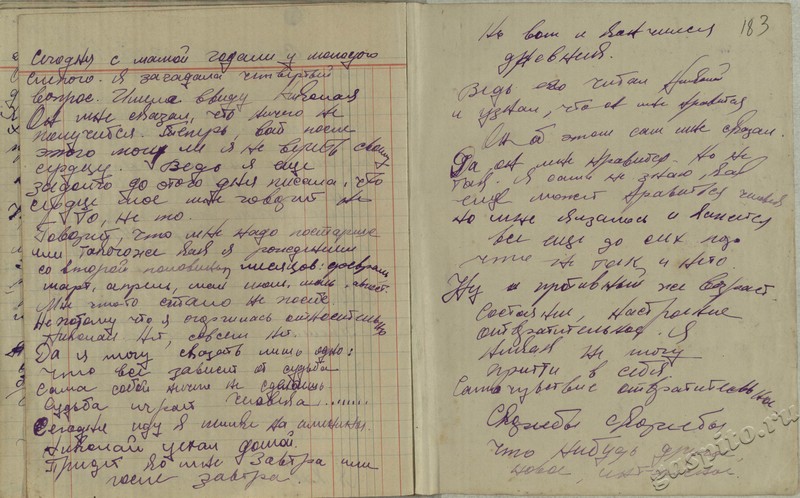 Сегодня с мамой гадали у молодого
слепого. Я загадала четвертый
вопрос. Имела ввиду Николая
Он мне сказал, что ничего не
получится. Теперь, вот после
этого могу ли я не верить своему
сердцу. Ведь я еще
задолго до этого дня писала, что
сердце мое мне говорит не
то, не то.
Говорит, что мне надо постарше
или такогоже как я рождении
со второй половины месяцов: февраль
март, апрель, май июнь, июль, август.
Мне чтото стало не
Не потому что я огорчилась относительно
Николая Нет, совсем нет.
Да я могу сказать лишь одно:
что всё зависит от судьбы
Сама собой ничего не сделаешь
Судьба играет человека......
Сегодня иду к на именины.
Николай уехал домой.
Придет ко мне Завтра или
после завтра.
183
Но вот и кончился
дневник.
Ведь его читал Николай
и узнал, что он мне нравится
Он об этом сам мне сказал.
Да он мне нравится. Но не
так. Я сама не знаю, как
еще может нравиться человек
но мне казалось и кажется
все еще до сих пор
что не так, и не то.
Ну и противный же возраст.
Состояние, настроение
отвратительное. Я
никак не могу
притти в себя
Самочувствие отвратительное
Скорее бы скорее бы
что нибудь
новое,
guspito.ru